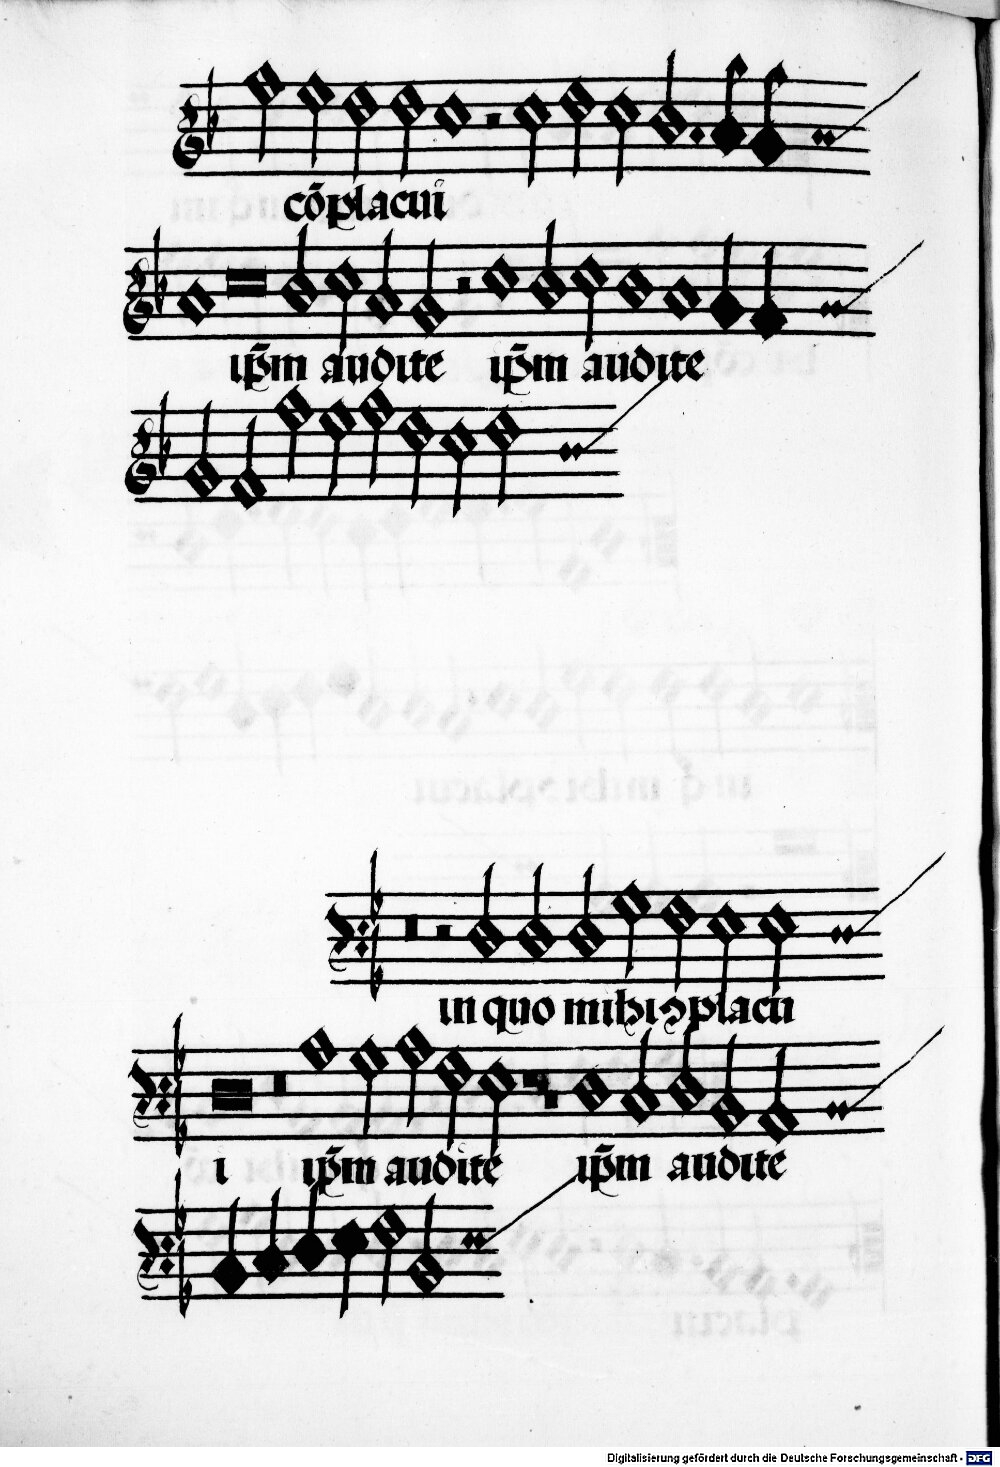 cõplacui
ip̃m audite ip̃m audite
in quo mihi ꝯplacu
i ip̃m audite ip̃m audite
Digitalisierung gefördert durch die Deutsche Forschungsgemeinschaft - DFG